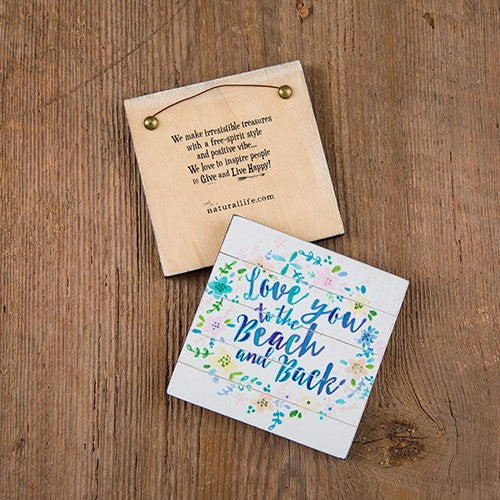 We make irresistible treasures
with a free-spirit style
and positive vibe...
We love to inspire people
to Give and Live Happy!
naturallife.com
Love you
to the
Beach
and Back